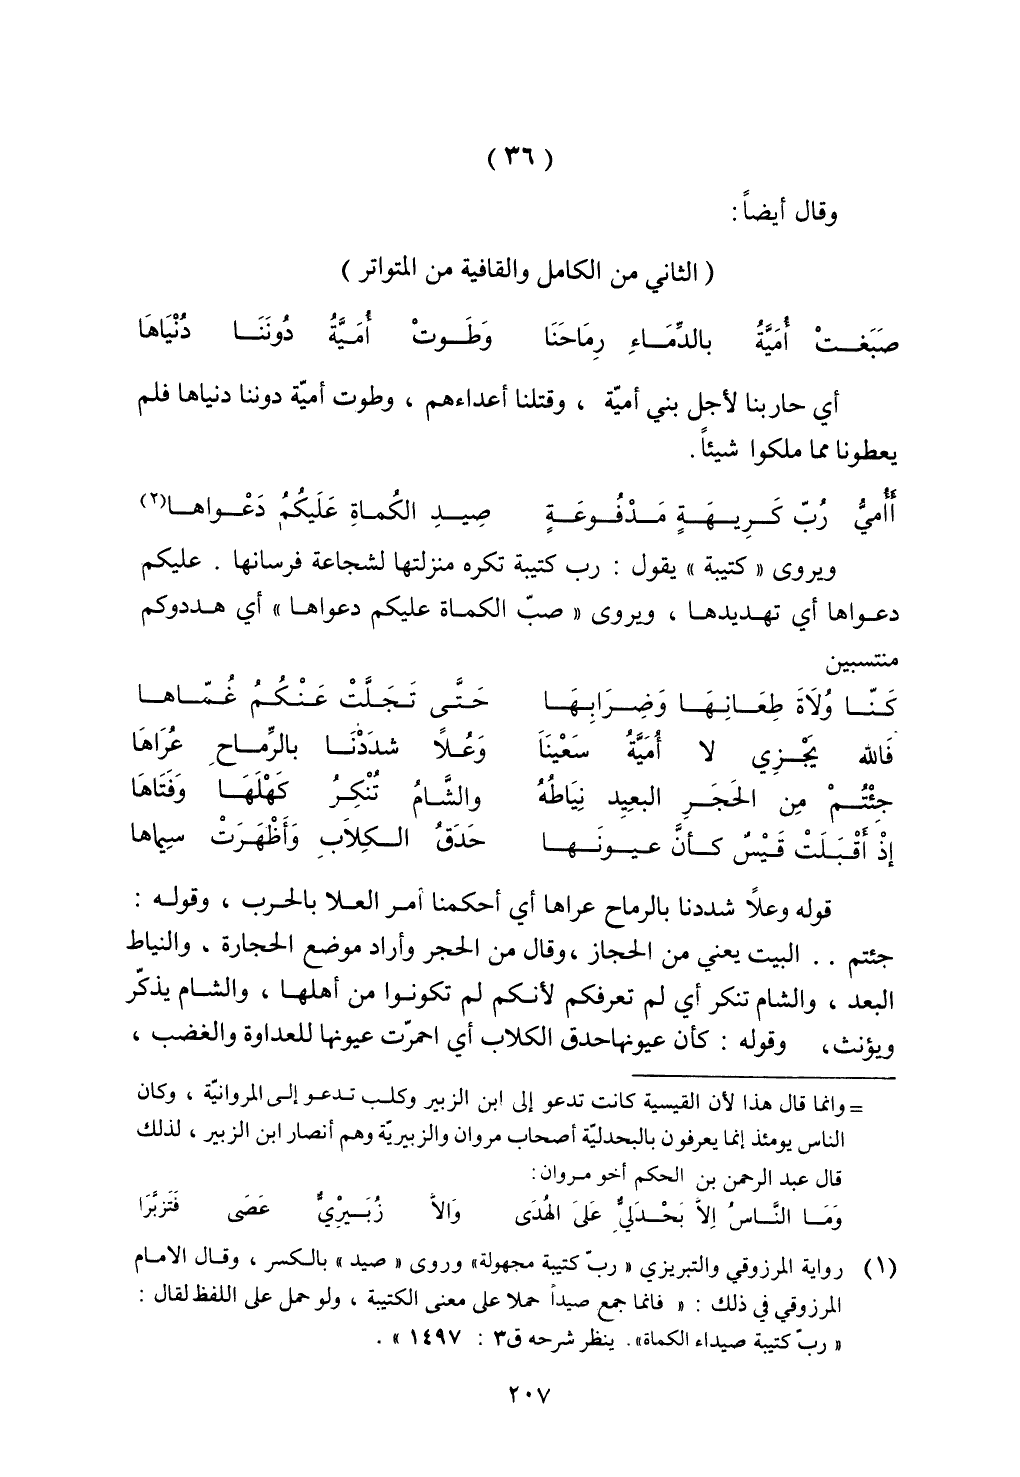 ( ٣٦ )
وقال أيضاً:
( الثاني من الكامل والقافية من المتواتر )
صَبَغَـتْ أُمَيَّةُ بالدِّمَـاءِ رِمَاحَنَا وَطَـوتْ أُمَـيَّةُ دُونَنَـا دُنْيَاهَا
أي حاربنا لأجل بني أميّة ، وقتلنا أعداءهم ، وطوت أميّة دوننا دنياها فلم
يعطونا مما ملكوا شيئاً.
أَأُميُّ رُبّ كَـرِيـهَـةٍ مَـدْفُـوعَـةٍ صِيـدِ الكُمـاةِ عَلَيكُمُ دَعْـواهـا(٢)
ويروى « كتيبة » يقول : رب كتيبة تكره منزلتها لشجاعة فرسانها . عليكم
دعـواها أي تهـديدهـا ، ويروى « صبّ الكماة عليكم دعواها » أي هـددوكم
منتسبين
كَنّـا وُلَاةَ طِعَـانِـهَـا وَضِـرَابِـهَـا حَـتَّـى تَـجَلَّتْ عَـنْـكُـمُ غُـمّـاهـا
فَالله يَجْـزِي لا أُمَيَّةُ سَعْيَنَا وَعُـلًا شدَدْنَـا بالرِّمـاحِ عُرَاهَا
جِئْتُـمْ مِن الحَجَـرِ البعِيدِ نِيَاطُهُ والشَّامُ تُنْكِـرُ كَهْلَهَـا وَفَتَاهَا
إذْ أَقْبَـلَتْ قَيْسٌ كـأنَّ عيـونَـهـا حَدَقُ الـكِلاَبِ وَأَظْهَـرَتْ سيماها
قوله وعلاً شددنا بالرماح عراها أي أحكمنا أمر العـلا بالحـرب ، وقولـه :
جئتم . . البيت يعني من الحجاز ،وقال من الحجر وأراد موضع الحجارة . والنياط
البعد ، والشام تنكر أي لم تعرفكم لأنـكم لم تكونـوا من أهلهـا ، والشـام يذكّر
ويؤنث، وقوله : كأن عيونهاحدق الكلاب أي احمرّت عيونها للعداوة والغضب ،
= وانما قال هذا لأن القيسية كانت تدعو إلى ابن الزبير وكلـب تـدعـو إلـى المروانيّة ، وكان
الناس يومئذ إنما يعرفون بالبحدليّة أصحاب مروان والزبيريّة وهم أنصار ابن الزبير ، لذلك
قال عبد الرحمن بن الحكم أخو مـروان:
وَمَـا النَّـاسُ اِلاَّ بَحْـدَلِيٌّ عَلىَ الهُدَى وَالاَّ زُبَـيـرْيٌّ عَصَى فَتَزبَّرَا
(١) رواية المرزوقي والتبريزي « ربّ كتيبة مجهولة» وروى « صيد » بالـكسر ، وقـال الامام
المرزوقي في ذلك : « فانما جمع صيداً حملا على معنى الكتيبة ، ولو حمل على اللفظ لقال :
« ربّ كتيبة صيداء الكماة». ينظر شرحه ق٣ : ١٤٩٧ » .
٢٠٧